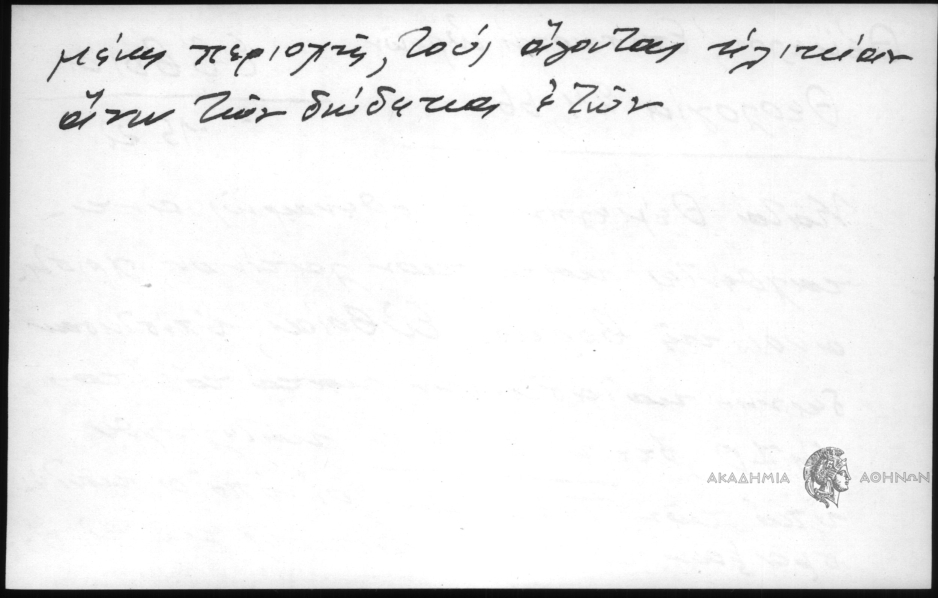 μένης περιοχῆς, τούς ἄγοντας ἡλικίαν
ἄνω τῶν δώδεκα ἐτῶν
ΑΚΑΔΗΜΙΑ ΑΘΗΝΩΝ